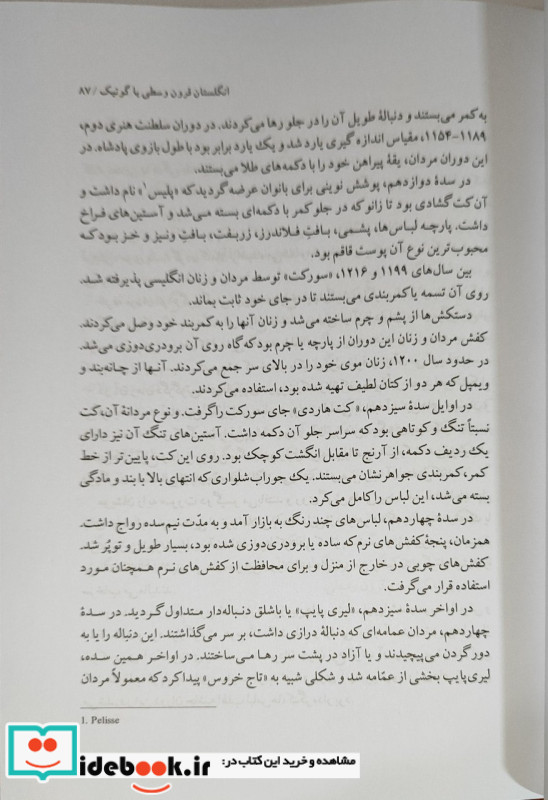 انگلستان قرون وسطی یا گوتیک / ۸۷
به کمر می‌بستند و دنبالهٔ طویل آن را در جلو رها می‌کردند. در دوران سلطنت هنری دوم،
۱۱۵۴-۱۱۸۹، مقیاس اندازه گیری یارد شد و یک یارد برابر بود با طول بازوی پادشاه. در
این دوران مردان، یقهٔ پیراهن خود را با دکمه‌های طلا می‌بستند.
در سدهٔ دوازدهم، پوشش نوینی برای بانوان عرضه گردید که «پلیس¹» نام داشت و
آن کت گشادی بود تا زانو که در جلو کمر با دکمه‌ای بسته می‌شد و آستین‌های فراخ
داشت. پارچه لباس‌ها، پشمی، بافتِ فلاندرز، زربفت، بافتِ ونیز و خز بود که
محبوب‌ترین نوع آن پوست قاقم بود.
بین سال‌های ۱۱۹۹ و ۱۲۱۶، «سورکت» توسط مردان و زنان انگلیسی پذیرفته شد.
روی آن تسمه یا کمربندی می‌بستند تا در جای خود ثابت بماند.
دستکش‌ها از پشم و چرم ساخته می‌شد و زنان آنها را به کمربند خود وصل می‌کردند.
کفش مردان و زنان این دوران از پارچه یا چرم بود که گاه روی آن برودری‌دوزی می‌شد.
در حدود سال ۱۲۰۰، زنان موی خود را در بالای سر جمع می‌کردند. آنها از چانه‌بند و
ویمپل که هر دو از کتان لطیف تهیه شده بود، استفاده می‌کردند.
در اوایل سدهٔ سیزدهم، «کت هاردی» جای سورکت را گرفت. و نوع مردانهٔ آن، کت
نسبتاً تنگ و کوتاهی بود که سراسر جلو آن دکمه داشت. آستین‌های تنگ آن نیز دارای
یک ردیف دکمه، از آرنج تا مقابل انگشت کوچک بود. روی این کت، پایین‌تر از خط
کمر، کمربندی جواهرنشان می‌بستند. یک جوراب‌شلواری که انتهای بالا با بند و مادگی
بسته می‌شد، این لباس را کامل می‌کرد.
در سدهٔ چهاردهم، لباس‌های چند رنگ به بازار آمد و به مدّت نیم‌سده رواج داشت.
همزمان، پنجهٔ کفش‌های نرم که ساده یا برودری‌دوزی شده بود، بسیار طویل و توپُر شد.
کفش‌های چوبی در خارج از منزل و برای محافظت از کفش‌های نرم همچنان مورد
استفاده قرار می‌گرفت.
در اواخر سدهٔ سیزدهم، «لیری پایپ» یا باشلق دنباله‌دار متداول گردید. در سدهٔ
چهاردهم، مردان عمامه‌ای که دنبالهٔ درازی داشت، بر سر می‌گذاشتند. این دنباله را یا به
دور گردن می‌پیچیدند و یا آزاد در پشت سر رها می‌ساختند. در اواخر همین سده،
لیری‌پایپ بخشی از عمّامه شد و شکلی شبیه به «تاج خروس» پیدا کرد که معمولاً مردان
1. Pelisse
مشاهده و خرید این کتاب در:
idebook.ir